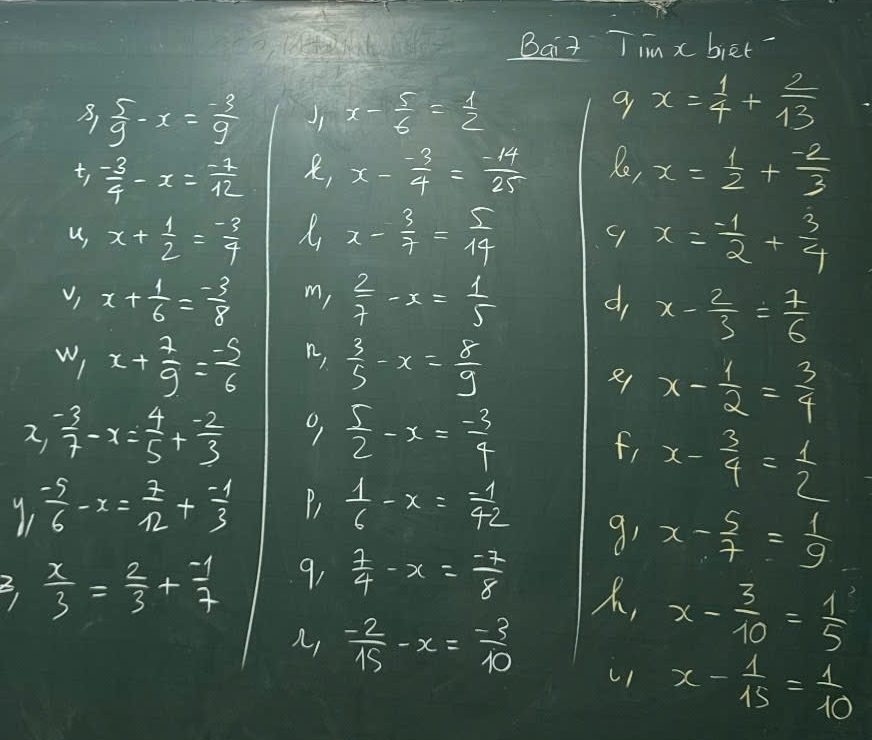 Bài 7 Tìm x biết
a, x = 1/4 + 2/13
b, x = 1/2 + -2/3
c, x = -1/2 + 3/4
d, x - 2/3 = 7/6
e, x - 1/2 = 3/4
f, x - 3/4 = 1/2
g, x - 5/7 = 1/9
h, x - 3/10 = 1/5
i, x - 1/15 = 1/10
j, x - 5/6 = 1/2
k, x - -3/4 = -14/25
l, x - 3/7 = 5/14
m, 2/7 - x = 1/5
n, 3/5 - x = 8/9
o, 5/2 - x = -3/4
p, 1/6 - x = -1/42
q, 7/4 - x = -7/8
r, -2/15 - x = -3/10
s, 5/9 - x = -3/9
t, -3/4 - x = -7/12
u, x + 1/2 = -3/4
v, x + 1/6 = -3/8
w, x + 7/9 = -5/6
x, -3/7 - x = 4/5 + -2/3
y, -5/6 - x = 7/12 + -1/3
z, x/3 = 2/3 + -1/7